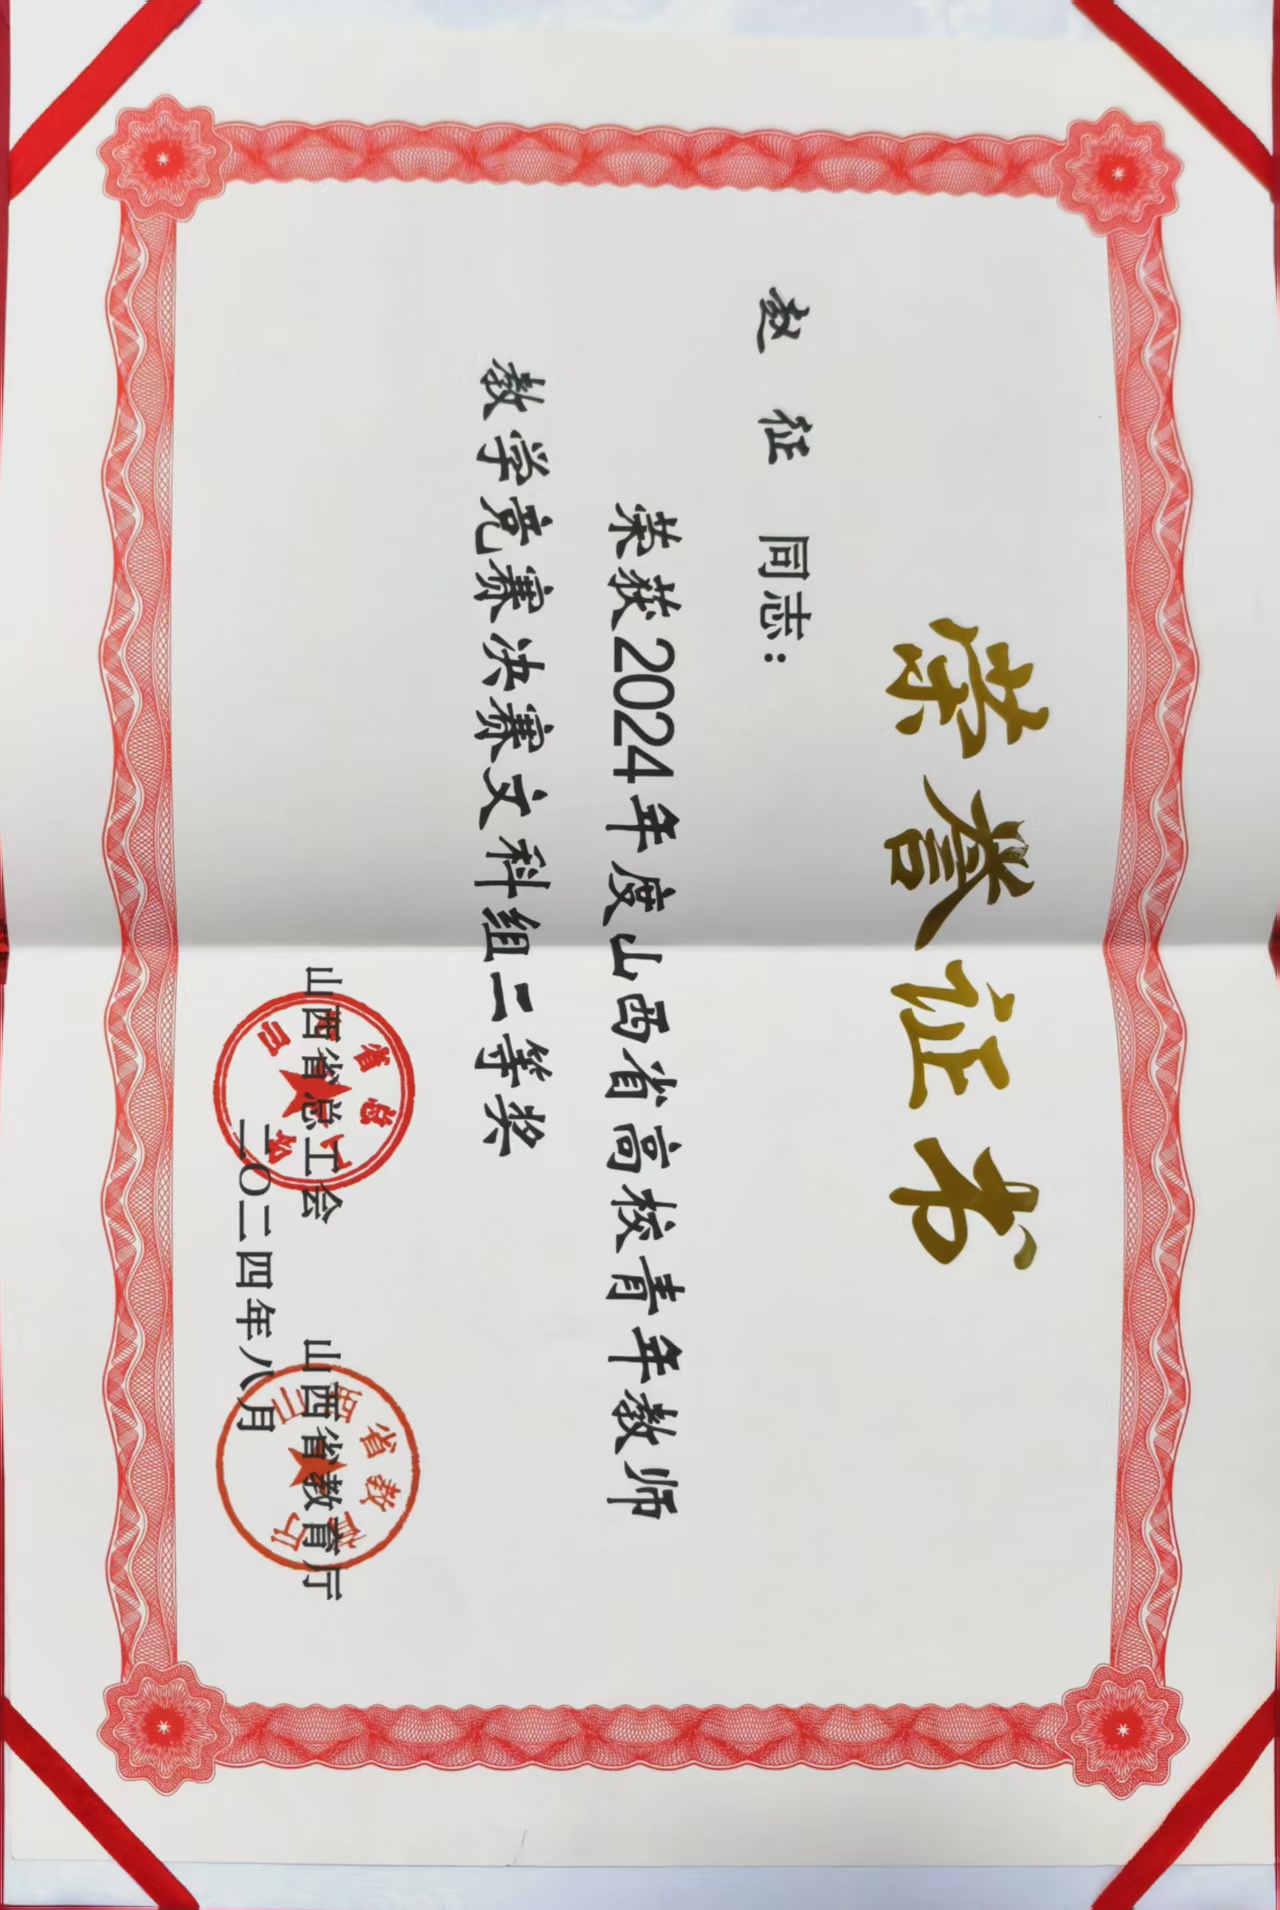 荣誉证书
赵 征 同志：
荣获2024年度山西省高校青年教师
教学竞赛决赛文科组二等奖
山西省总工会 山西省教育厅
二〇二四年八月